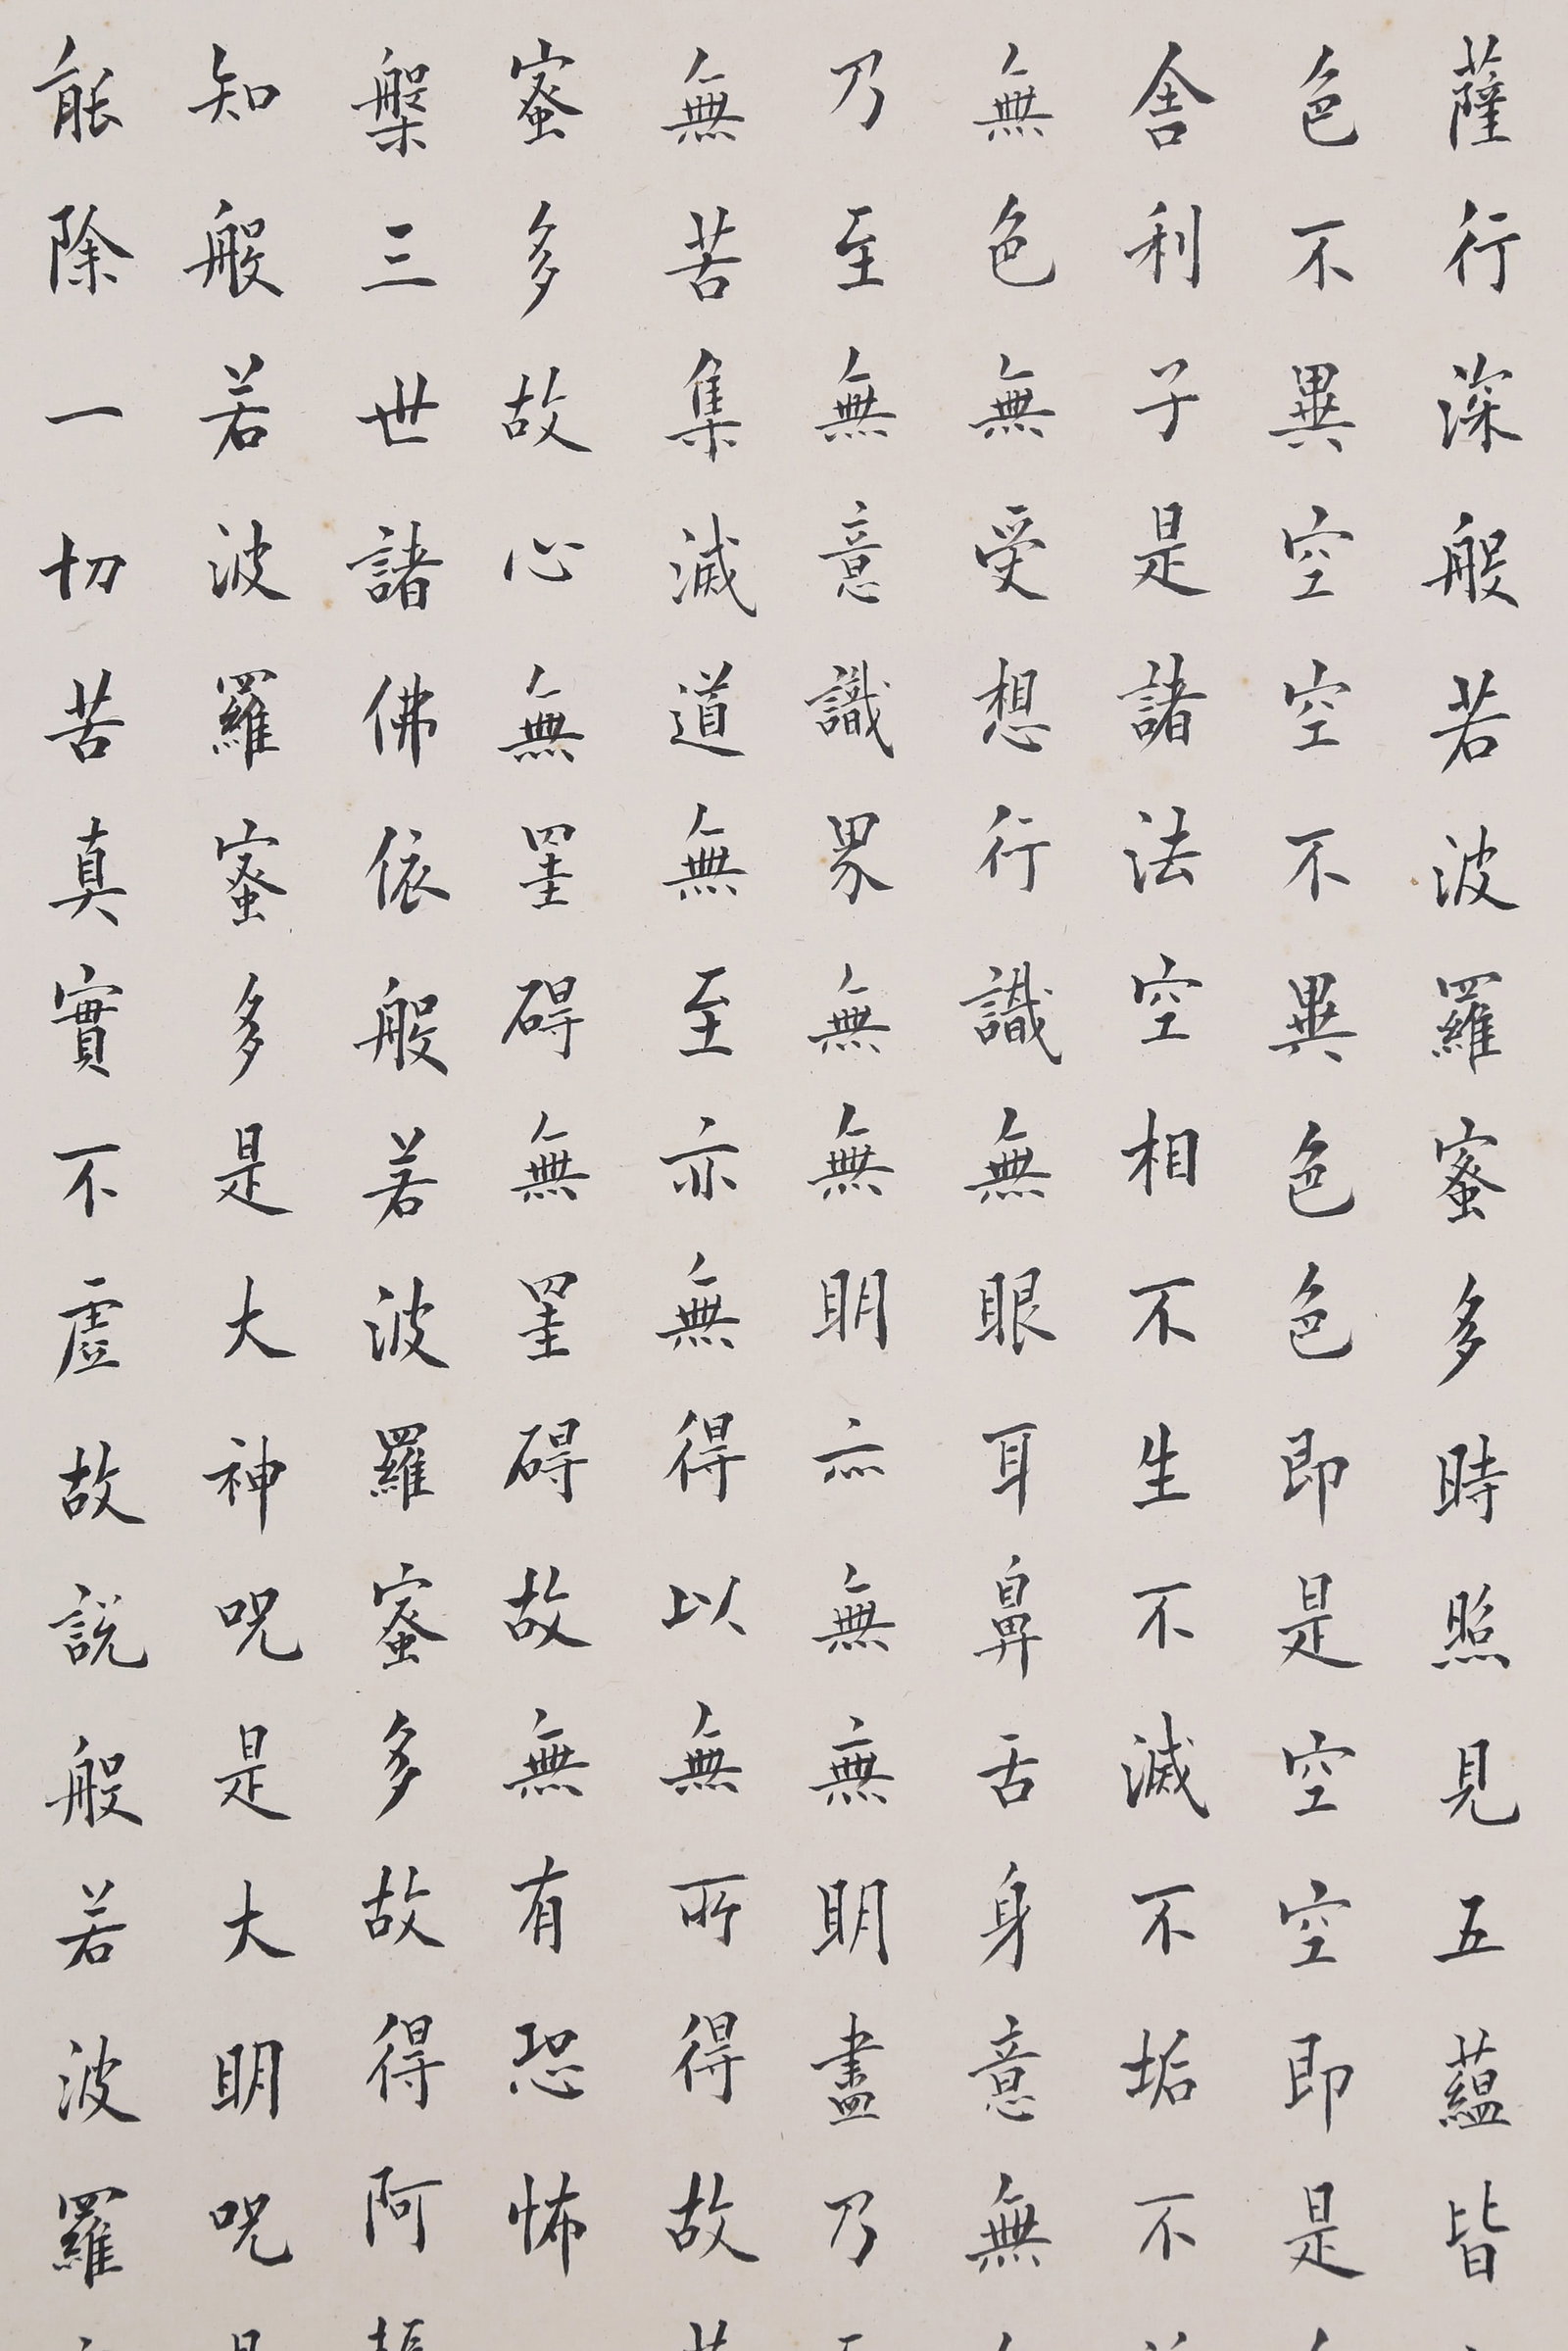 薩行深般若波羅蜜多時照見五蘊皆
色不異空空不異色色即是空空即是
舍利子是諸法空相不生不滅不垢不
無色無受想行識無眼耳鼻舌身意無
乃至無意識界無無明亦無無明盡乃
無苦集滅道無至亦無得以無所得故
蜜多故心無罣碍無罣碍故無有恐怖
槃三世諸佛依般若波羅蜜多故得阿
知般若波羅蜜多是大神呪是大明呪
能除一切苦真實不虛故說般若波羅